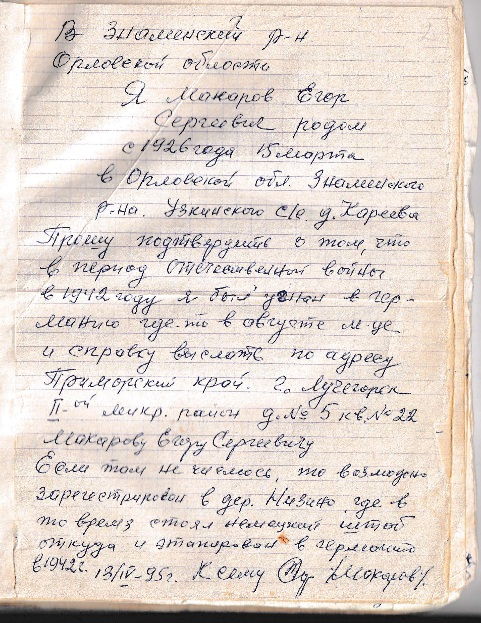 В Знаменский р-н
Орловской области
Я Макаров Егор
Сергеевич родом
с 1926 года 15 марта
в Орловской обл. Знаменского
р-на. Узкинского с/с д. Кареева
Прошу подтвердить о том, что
в период Отечественной войны
в 1942 году я был угнан в гер-
манию где-то в августе м-це
и справку выслать по адресу
Приморский край. г. Лучегорск
II-ой микр. район д. № 5 кв. № 22
Макарову Егору Сергеевичу
Если там не числюсь, то возможно
зарегестрирован в дер. Низино где в
то время стоял немецкой штаб
откуда и этапирован в германию
в 1942 г. 13/IV-95г. К сему /Макаров/.